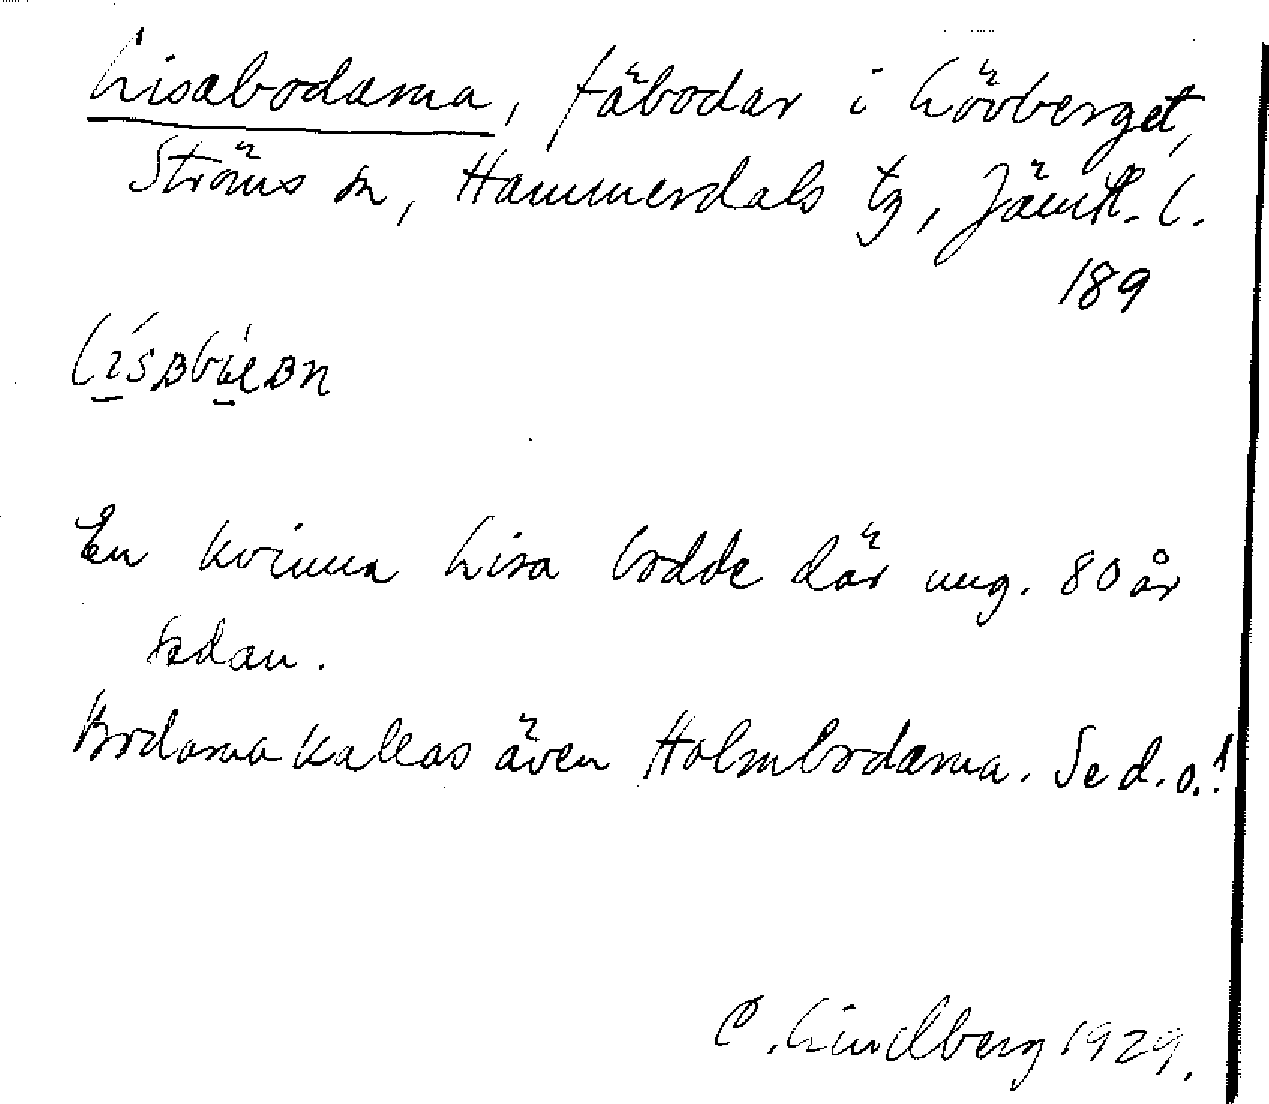 Lisabodarna, fäbodar i Lövberget,
Ströms sn, Hammerdals tg, Jämtl. l.
189
En kvinna Lisa bodde där ung. 80 år
sedan.
Bodarna kallas även Holmbodarna. Se d. o.!
C. Lindberg 1929.